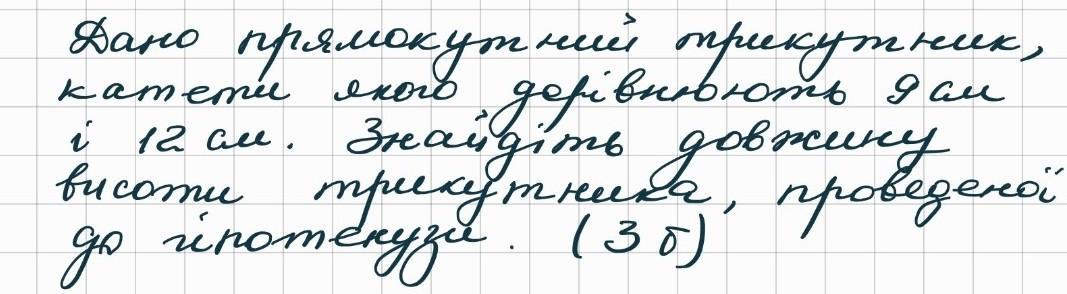 Дано прямокутний трикутник,
катети якого дорівнюють 9 см
і 12 см. Знайдіть довжину
висоти трикутника, проведеної
до гіпотенузи. (3 б)